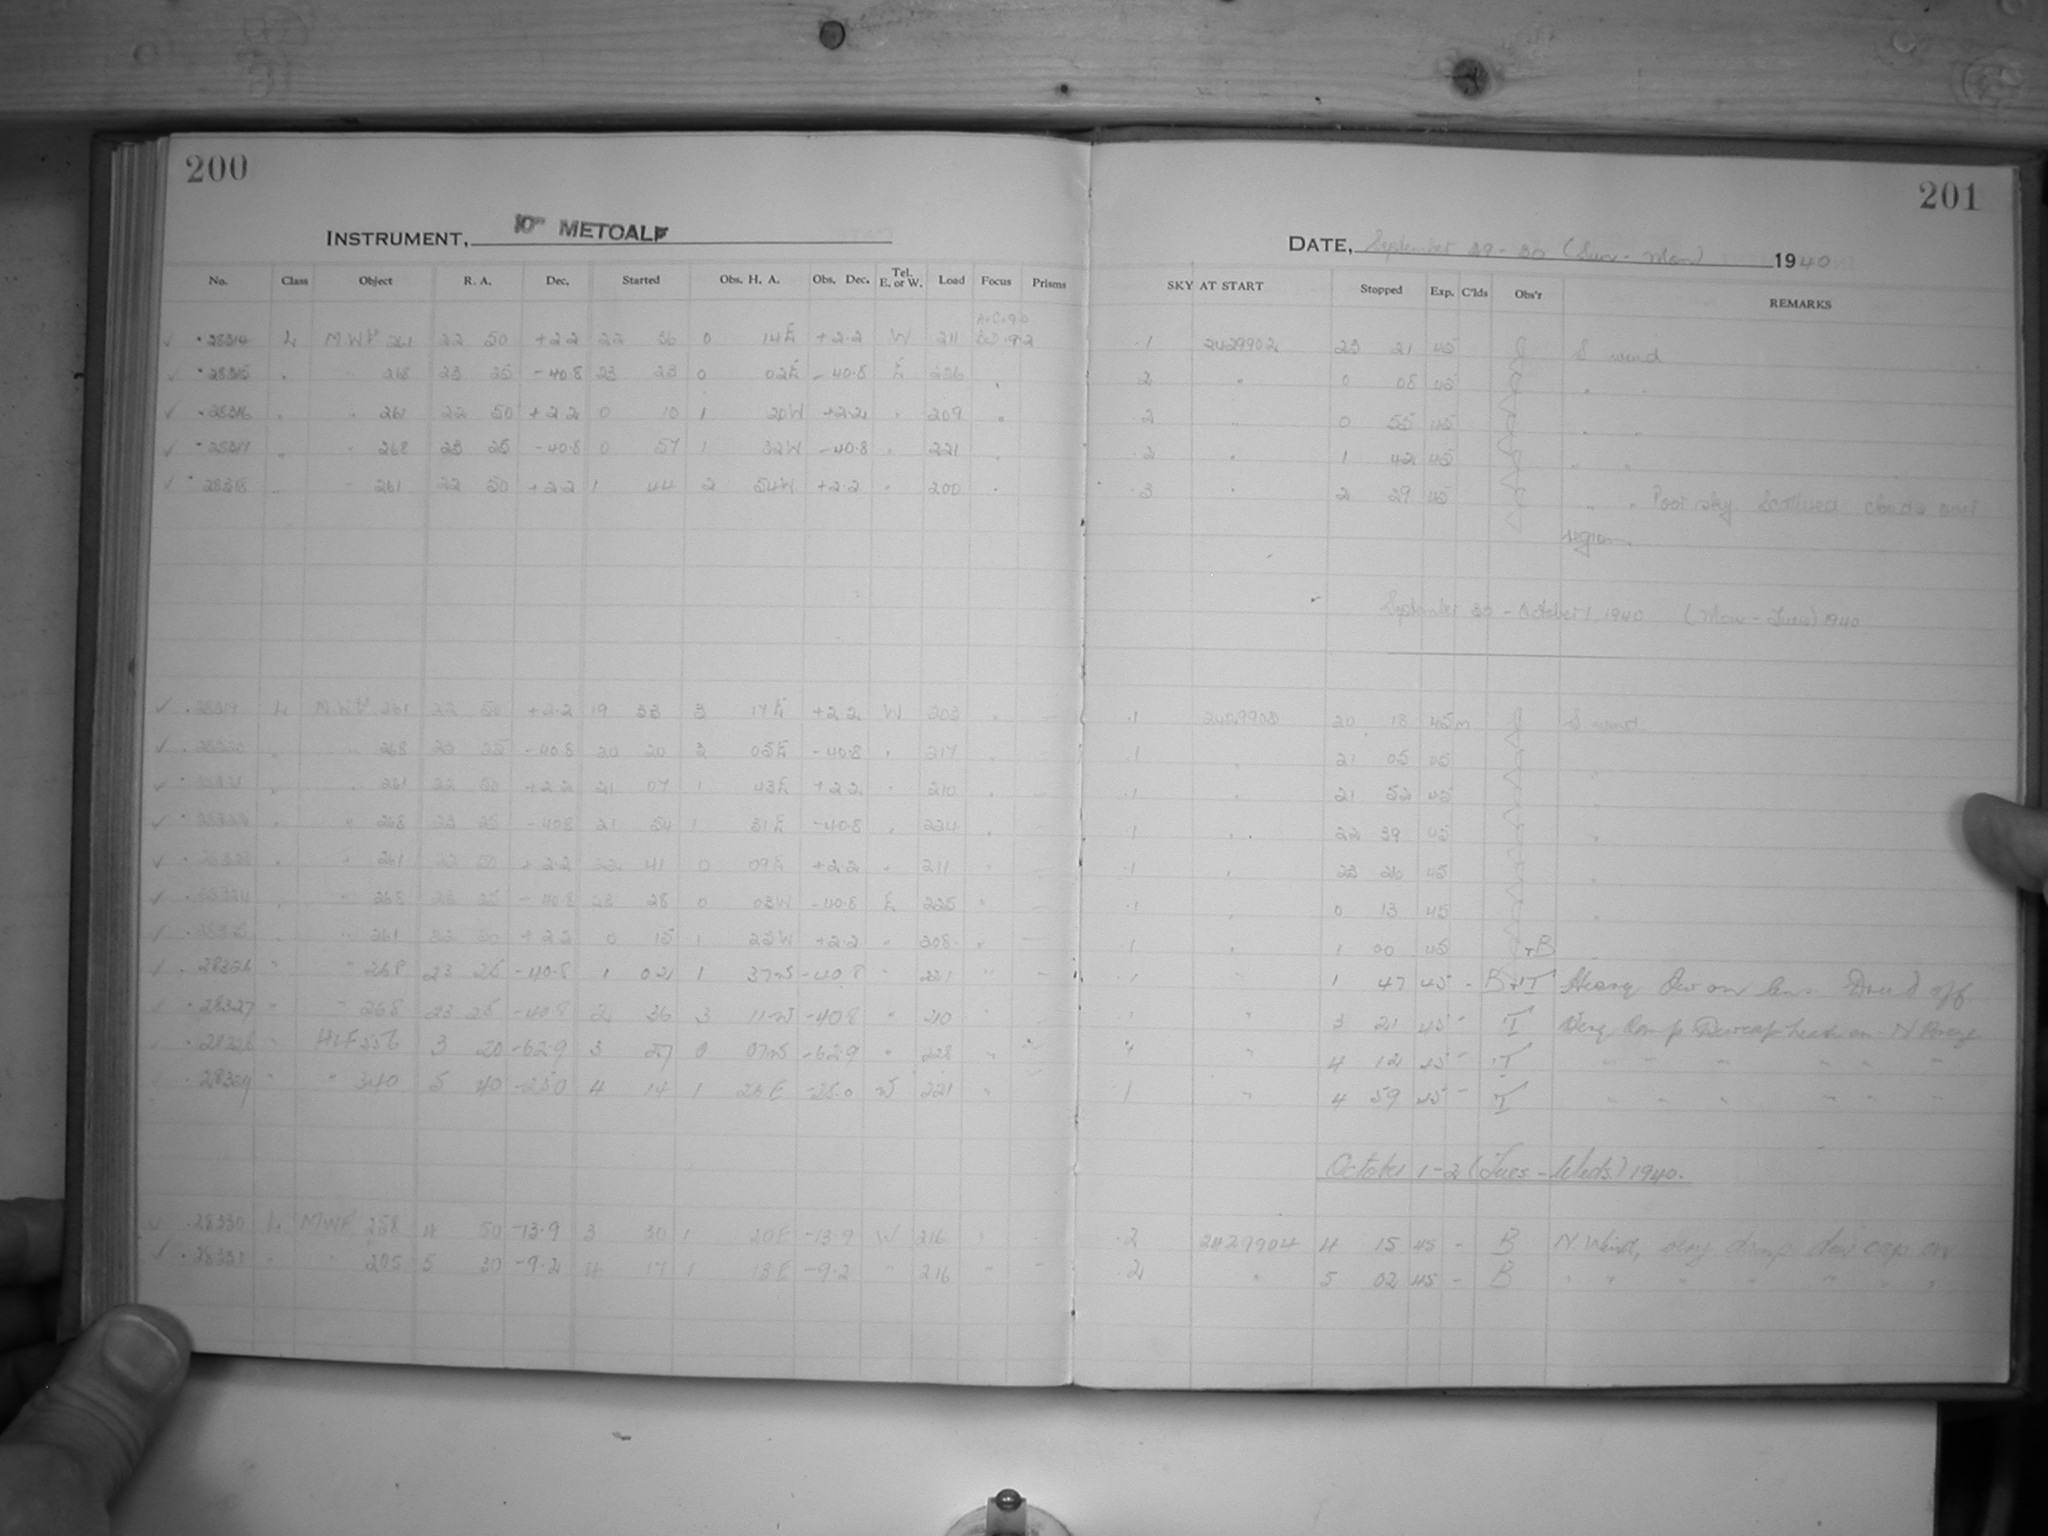 200
201
INSTRUMENT, 10" METCALF
DATE, September 29-30 (Sun - Mon) 1940
No. Class Object R. A. Dec. Started Obs. H. A. Obs. Dec. Tel. E. or W. Load Focus Prisms SKY AT START Stopped Exp. C'lds Obs'r REMARKS
28314 L MWF 261 22 50 +2.2 22 36 0 14E +2.2 W 211 .1 2429902 23 21 45 S wind
28315 " " 268 23 25 -40.8 23 23 0 02E -40.8 E 236 .2 " 0 08 45 " "
28316 " " 261 22 50 +2.2 0 10 1 20W +2.2 " 209 " .2 " 0 55 45 " "
28317 " " 268 23 25 -40.8 0 57 1 32W -40.8 " 221 " .2 " 1 42 45 " "
28318 " " 261 22 50 +2.2 1 44 2 54W +2.2 " 200 " .3 " 2 29 45 " " Poor sky. Scattered clouds over
region.
September 30 - October 1 1940 (Mon - Tues) 1940
28319 L MWF 261 22 50 +2.2 19 33 3 17E +2.2 W 203 " - .1 2429903 20 18 45m S wind
28320 " " 268 23 25 -40.8 20 20 3 05E -40.8 " 217 " - .1 " 21 05 45 "
28321 " " 261 22 50 +2.2 21 07 1 43E +2.2 " 210 " - .1 " 21 52 45 "
28322 " " 268 23 25 -40.8 21 54 1 31E -40.8 " 224 " - .1 " 22 39 45 "
28323 " " 261 22 50 +2.2 22 41 0 09E +2.2 " 211 " - .1 " 23 26 45 "
28324 " " 268 23 25 -40.8 23 28 0 03W -40.8 E 225 " - .1 " 0 13 45 "
28325 " " 261 22 50 +2.2 0 15 1 25W +2.2 " 208 " - .1 " 1 00 45 +B
28326 " " 268 23 25 -40.8 1 02 1 37W -40.8 " 221 " - .1 " 1 47 45 - B+T Heavy Dew on lens Dried off
28327 " " 268 23 25 -40.8 2 36 3 11W -40.8 " 210 " - .1 " 3 21 45 - T Very Damp Dewcap heater on N Breeze
28328 " HLF 556 3 20 -62.9 3 27 0 07W -62.9 " 228 " - " " 4 12 45 - T " " " " " "
28329 " " 340 5 40 -25.0 4 14 1 26E -25.0 W 221 " .1 " 4 59 45 - T " " " " " "
October 1-2 (Tues - Weds.) 1940.
28330 L MWF 258 4 50 -13.9 3 30 1 20E -13.9 W 216 " - .2 2429904 4 15 45 - B N Wind, very damp dew cap on
28331 " " 205 5 30 -9.2 4 17 1 13E -9.2 " 216 " - .2 " 5 02 45 - B " " " " " " "